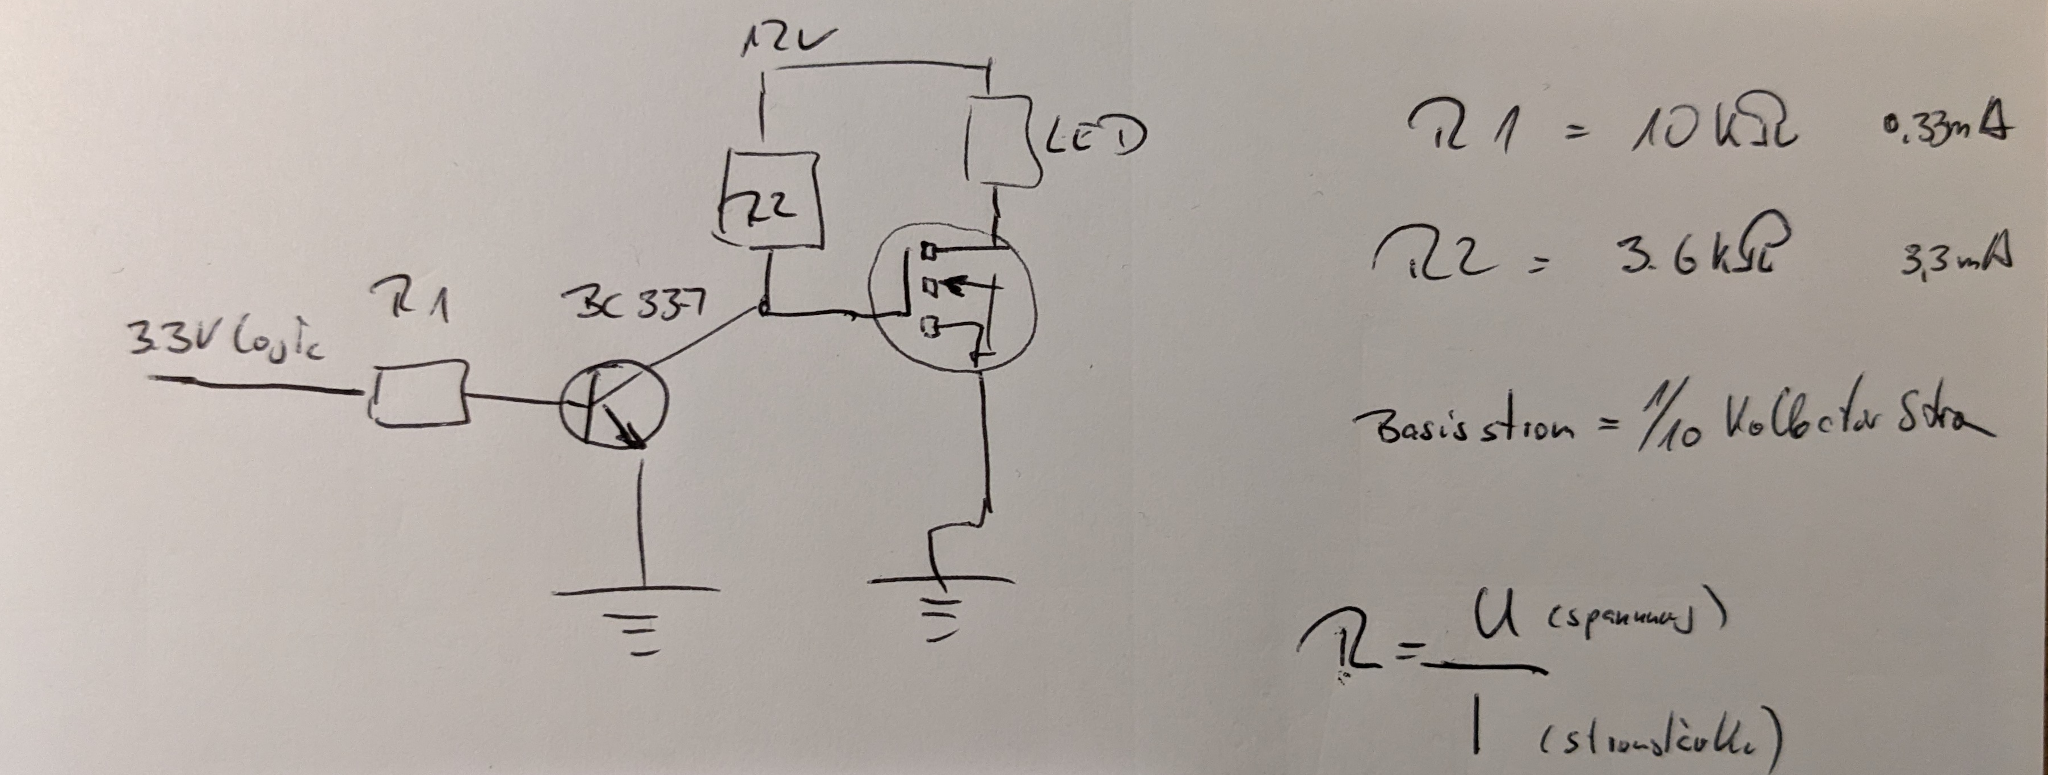 12V
LED
R2
R1
BC 337
3.3V Logic
R1 = 10kΩ 0.33mA
R2 = 3.6kΩ 3,3mA
Basisstrom = 1/10 Kollector Strom
R = U (spannung)
I (stromstärke)